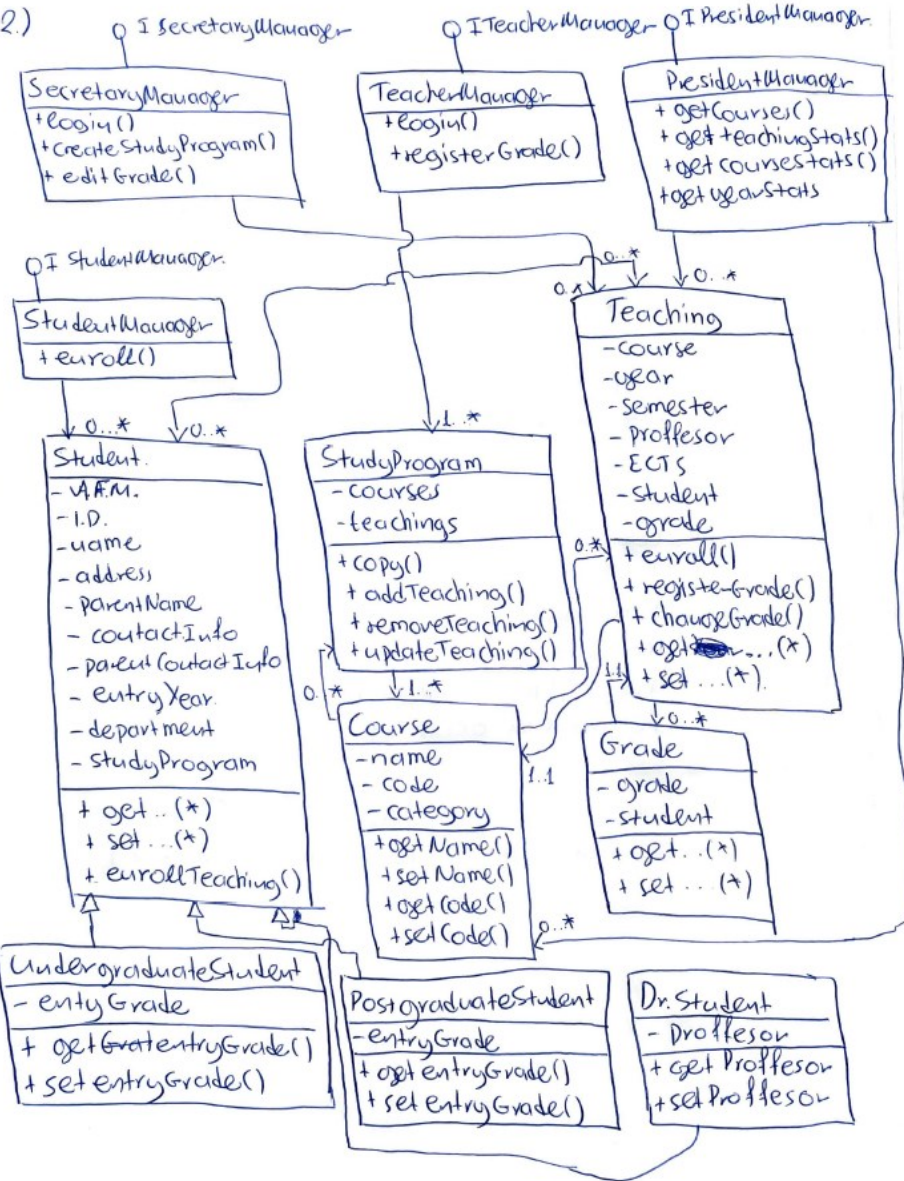 2.)
I SecretaryManager
I TeacherManager
I PresidentManager.
SecretaryManager
+login()
+createStudyProgram()
+ editGrade()
TeacherManager
+login()
+registerGrade()
PresidentManager
+ getCourses()
+ get teachingStats()
+get courseStats()
+get yearStats
I StudentManager.
StudentManager
+ enroll()
0...*
0...*
0..*
0..*
0..*
1..*
Teaching
-course
-year
-semester
- proffesor
-ECTS
-student
-grade
+ enroll()
+ registerGrade()
+ changeGrade()
+ get ...(*)
+ set ...(*).
Student.
- A.F.M.
- I.D.
-name
-address
- parentName
- contactInfo
-parentContactInfo
- entryYear.
-department
- studyProgram
+ get ..(*)
+ set ...(*)
+ enrollTeaching()
StudyProgram
-courses
-teachings
+copy()
+ addTeaching()
+removeTeaching()
+updateTeaching()
0..*
0..*
1..*
1..1
0..*
1..1
Course
-name
- code
- category
+getName()
+setName()
+getCode()
+setCode()
Grade
- grade
-student
+ get...(*)
+ set ...(*)
0..*
UndergraduateStudent
- entyGrade
+ getentryGrade()
+ setentryGrade()
PostgraduateStudent
-entryGrade
+ getentryGrade()
+ setentryGrade()
Dr.Student
- Proffesor
+ get Proffesor
+setProffesor